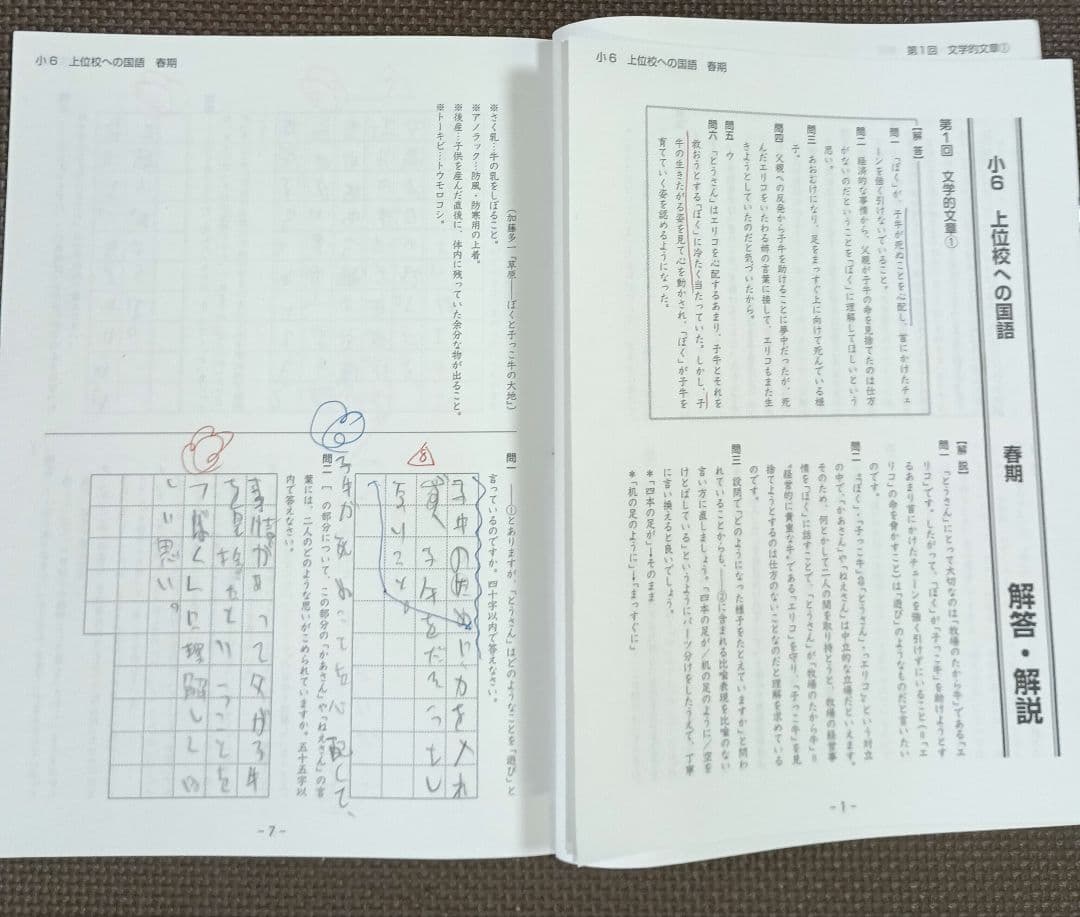 小6　上位校への国語　春期
※さく乳…牛の乳をしぼること。
※アノラック…防風・防寒用の上着。
※後産…子供を産んだ直後に、体内に残っていた余分な物が出ること。
※トーキビ…トウモロコシ。
（加藤多一「草原――ぼくと子っこ牛の大地」）
問一　――①とありますが、「とうさん」はどのようなことを「遊び」と
言っているのですか。四十字以内で答えなさい。
子牛が死ぬ
って
心配して、
問二　の部分について、この部分の「かあさん」や「ねえさん」の言
葉には、二人のどのような思いがこめられていますか。五十五字以
内で答えなさい。
事情があって父が子牛
を見捨てたということを
「ぼく」に理解してほ
しい思い。
-7-
第1回　文学的文章①
小6　上位校への国語　春期
小6　上位校への国語　春期　解答・解説
第1回　文学的文章①
【解答】
問一　「ぼく」が、子牛が死ぬことを心配し、首にかけたチェ
ーンを強く引けないでいること。
問二　経済的な事情から、父親が子牛の命を見捨てたのは仕方
がないのだということを「ぼく」に理解してほしいという
思い。
問三　あおむけになり、足をまっすぐ上に向けて死んでいる様
子。
問四　父親への反発から子牛を助けることに夢中だったが、死
んだエリコをいたわる姉の言葉に接して、エリコもまた生
きようとしていたのだと気づいたから。
問五　ウ
問六　「とうさん」はエリコを心配するあまり、子牛とそれを
救おうとする「ぼく」に冷たく当たっていた。しかし、子
牛の生きたがる姿を見て心を動かされ、「ぼく」が子牛を
育てていく姿を認めるようになった。
【解説】
問一　「とうさん」にとって大切なのは「牧場のたから牛」である「エ
リコ」です。したがって、「ぼく」が「子っこ牛」を助けようとす
るあまり首にかけたチェーンを強く引けずにいること（＝「エ
リコ」の命を脅かすこと）は「遊び」のようなものだと言いたい
のです。
問二　「ぼく」・「子っこ牛」⇔「とうさん」・「エリコ」という対立
の中で、「かあさん」や「ねえさん」は中立的な立場だといえます。
そのため、何とかして二人の間を取り持とうと、牧場の経営事
情を「ぼく」に話すことで、「とうさん」が「牧場のたから牛」＝
"経営的に貴重な牛"である「エリコ」を守り、「子っこ牛」を見
捨てようとするのは仕方のないことなのだと理解を求めている
のです。
問三　設問で「どのようになった様子をたとえていますか」と問わ
れていることからも、――②に含まれる比喩表現を比喩のない
言い方に直しましょう。「四本の足が／机の足のように／空を
けとばしている」というようにパーツ分けをしたうえで、丁寧
に言い換えると良いでしょう。
＊「四本の足が」→そのまま
＊「机の足のように」→「まっすぐに」
-1-